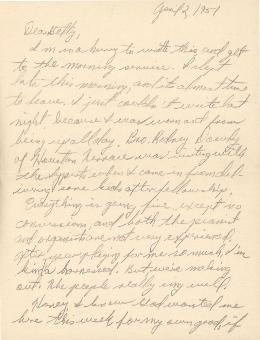 Jan 2, 1951
Dear Betty,
I'm in a hurry to write this and get
to the morning service. I slept
late this morning, and its almost time
to leave. I just couldn't write last
night because I was worn out from
being up all day. Bro. Rodney
of Houston Terrace was visiting with
the when I came in from
some kids after fellowship.
Everything is going fine, except no
conversions, and both the pianist
and organist are not very experienced.
After your playing for me so much, I'm
kinda harassed. But we're making
out. The people really sing well.
Honey I know God wanted me
here this week for my own good, if